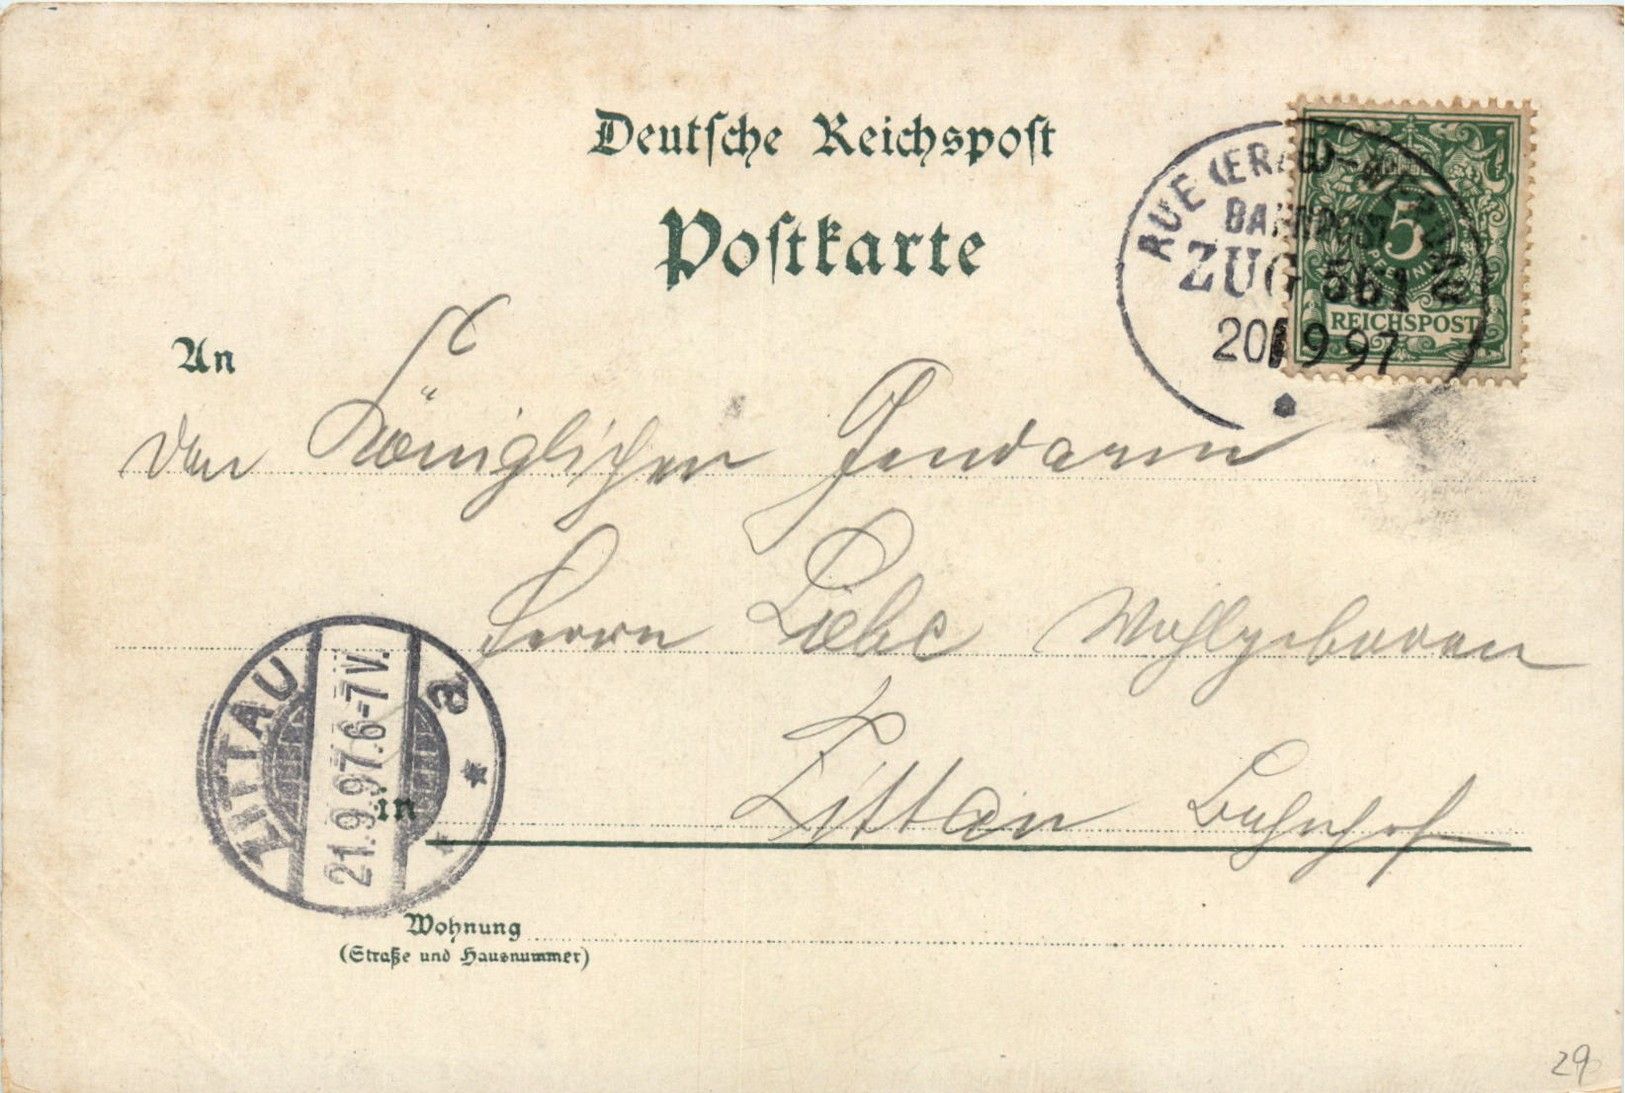 Deutsche Reichspost
Postkarte
AUE (ERZG)-WERDAU
BAHNPOST
ZUG 561
20 9 97
5
PFENNIG
REICHSPOST
An
den Königlichen Gendarm
Herrn Liebe Wohlgeboren
ZITTAU a
21.9.97.6-7V.
in Zittau Bahnhof
Wohnung
(Straße und Hausnummer)
29